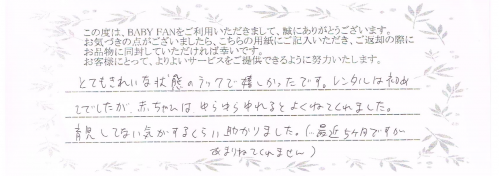 この度は、BABY FANをご利用いただきまして、誠にありがとうございます。
お気づきの点がございましたら、こちらの用紙にご記入いただき、ご返却の際に
お品物に同封していただければ幸いです。
お客様にとって、よりよいサービスをご提供できるように努力いたします。
とてもきれいな状態のラックで嬉しかったです。レンタルは初め
てでしたが、赤ちゃんは ゆらゆらゆれると よくねてくれました。
育児してない気がするくらい助かりました。(最近5ヶ月ですが
あまりねてくれません)